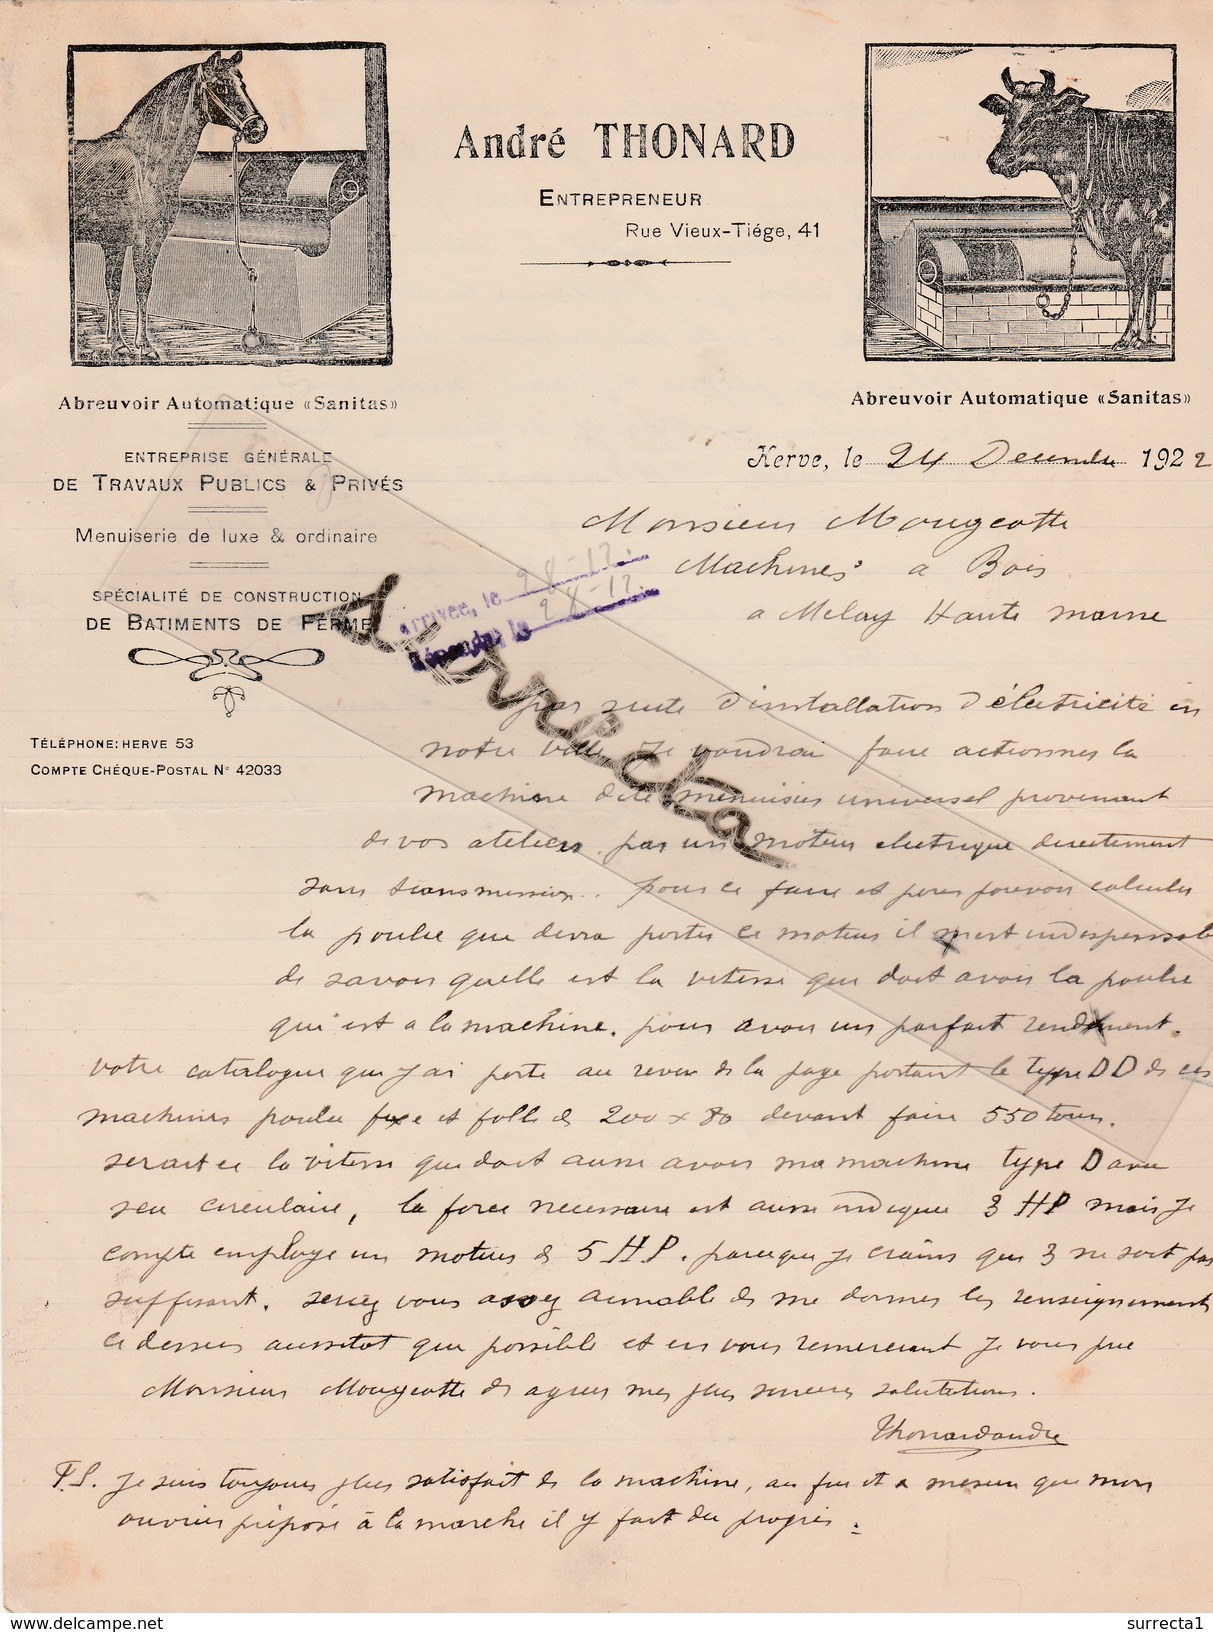 André THONARD
ENTREPRENEUR
Rue Vieux-Tiége, 41
Abreuvoir Automatique «Sanitas»
Abreuvoir Automatique «Sanitas»
ENTREPRISE GÉNÉRALE
DE TRAVAUX PUBLICS & PRIVÉS
Menuiserie de luxe & ordinaire
SPÉCIALITÉ DE CONSTRUCTION
DE BATIMENTS DE FERME
TÉLÉPHONE: HERVE 53
COMPTE CHÉQUE-POSTAL N° 42033
Herve, le 24 Decembre 1922
Monsieur Mougeotte
Machines a Bois
a Melay Haute marne
Arrivée, le 28-12.
Répondu le 28-12.
surrecta
par suite d'installation d'électricité en
notre ville je voudrai faire actionner la
machine dite menuisier universel provenant
de vos ateliers. par un moteur electrique directement
sans transmission.. pour ce faire et pour pouvoir calculer
la poulie que devra porter ce moteur il m'est indispensable
de savoir quelle est la vitesse que doit avoir la poulie
qui est a la machine. pour avoir un parfait rendement.
votre catalogue que j'ai porte au revers de la page portant le type DD de ces
machines poulie fixe et folle de 200 x 80 devant faire 550 tours.
serait ce la vitesse que doit aussi avoir ma machine type D avec
seu circulaire, la force necessaire est aussi indiquee 3 HP mais je
compte employe un moteur de 5 HP. parceque je crains que 3 ne soit pas
suffisant. serez vous assez aimable de me donner les renseignements
ci dessus aussitot que possible et en vous remerciant je vous prie
Monsieur Mougeotte de agreer mes plus sinceres salutations.
Thonardandre
P.S. je suis toujours plus satisfait de la machine, au fur et a mesure que mon
ouvrier préposé à la marche il y fait du progrès.
www.delcampe.net
surrecta1